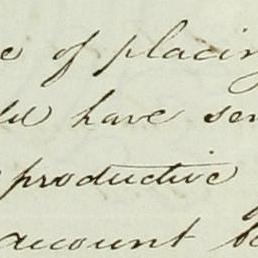 e of placing
ld have sen
productive
account b